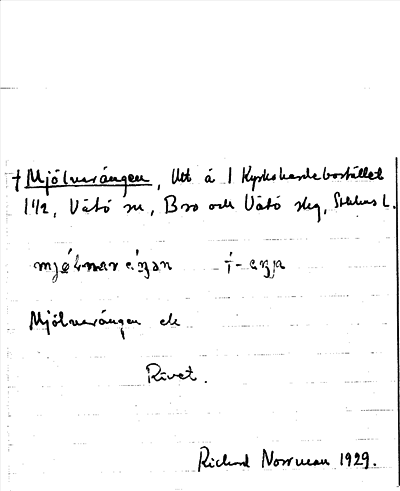 † Mjölnarängen, Utt å 1 Kyrkoherdebostället
1 1/2, Vätö sn, Bro och Vätö skg, Sthlms L.
Mjölnarängen ek
Rivet.
Richard Norrman 1929.